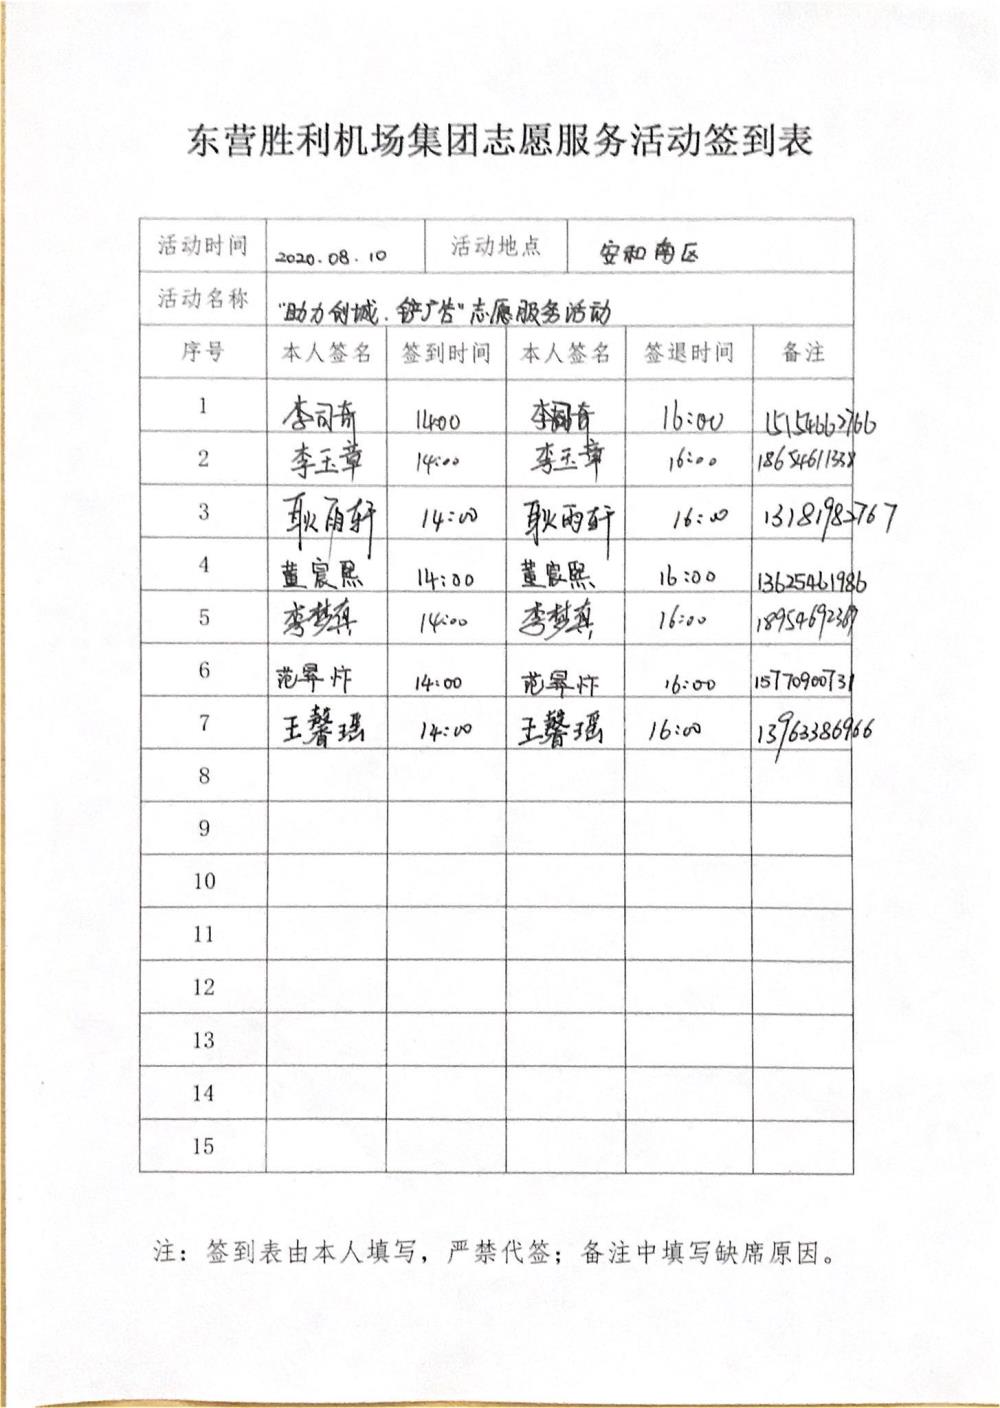 东营胜利机场集团志愿服务活动签到表
活动时间 2020.08.10 活动地点 安和南区
活动名称 "助力创城.铲广告"志愿服务活动
序号 本人签名 签到时间 本人签名 签退时间 备注
1 李司奇 14:00 李司奇 16:00 15154662766
2 李玉章 14:00 李玉章 16:00
3 耿雨轩 14:00 耿雨轩 16:00 13181982767
4 董宸熙 14:00 董宸熙 16:00 13625461986
5 李梦真 14:00 李梦真 16:00
6 14:00 16:00 15770900731
7 王馨瑶 14:00 王馨瑶 16:00 13963386966
8
9
10
11
12
13
14
15
注：签到表由本人填写，严禁代签；备注中填写缺席原因。